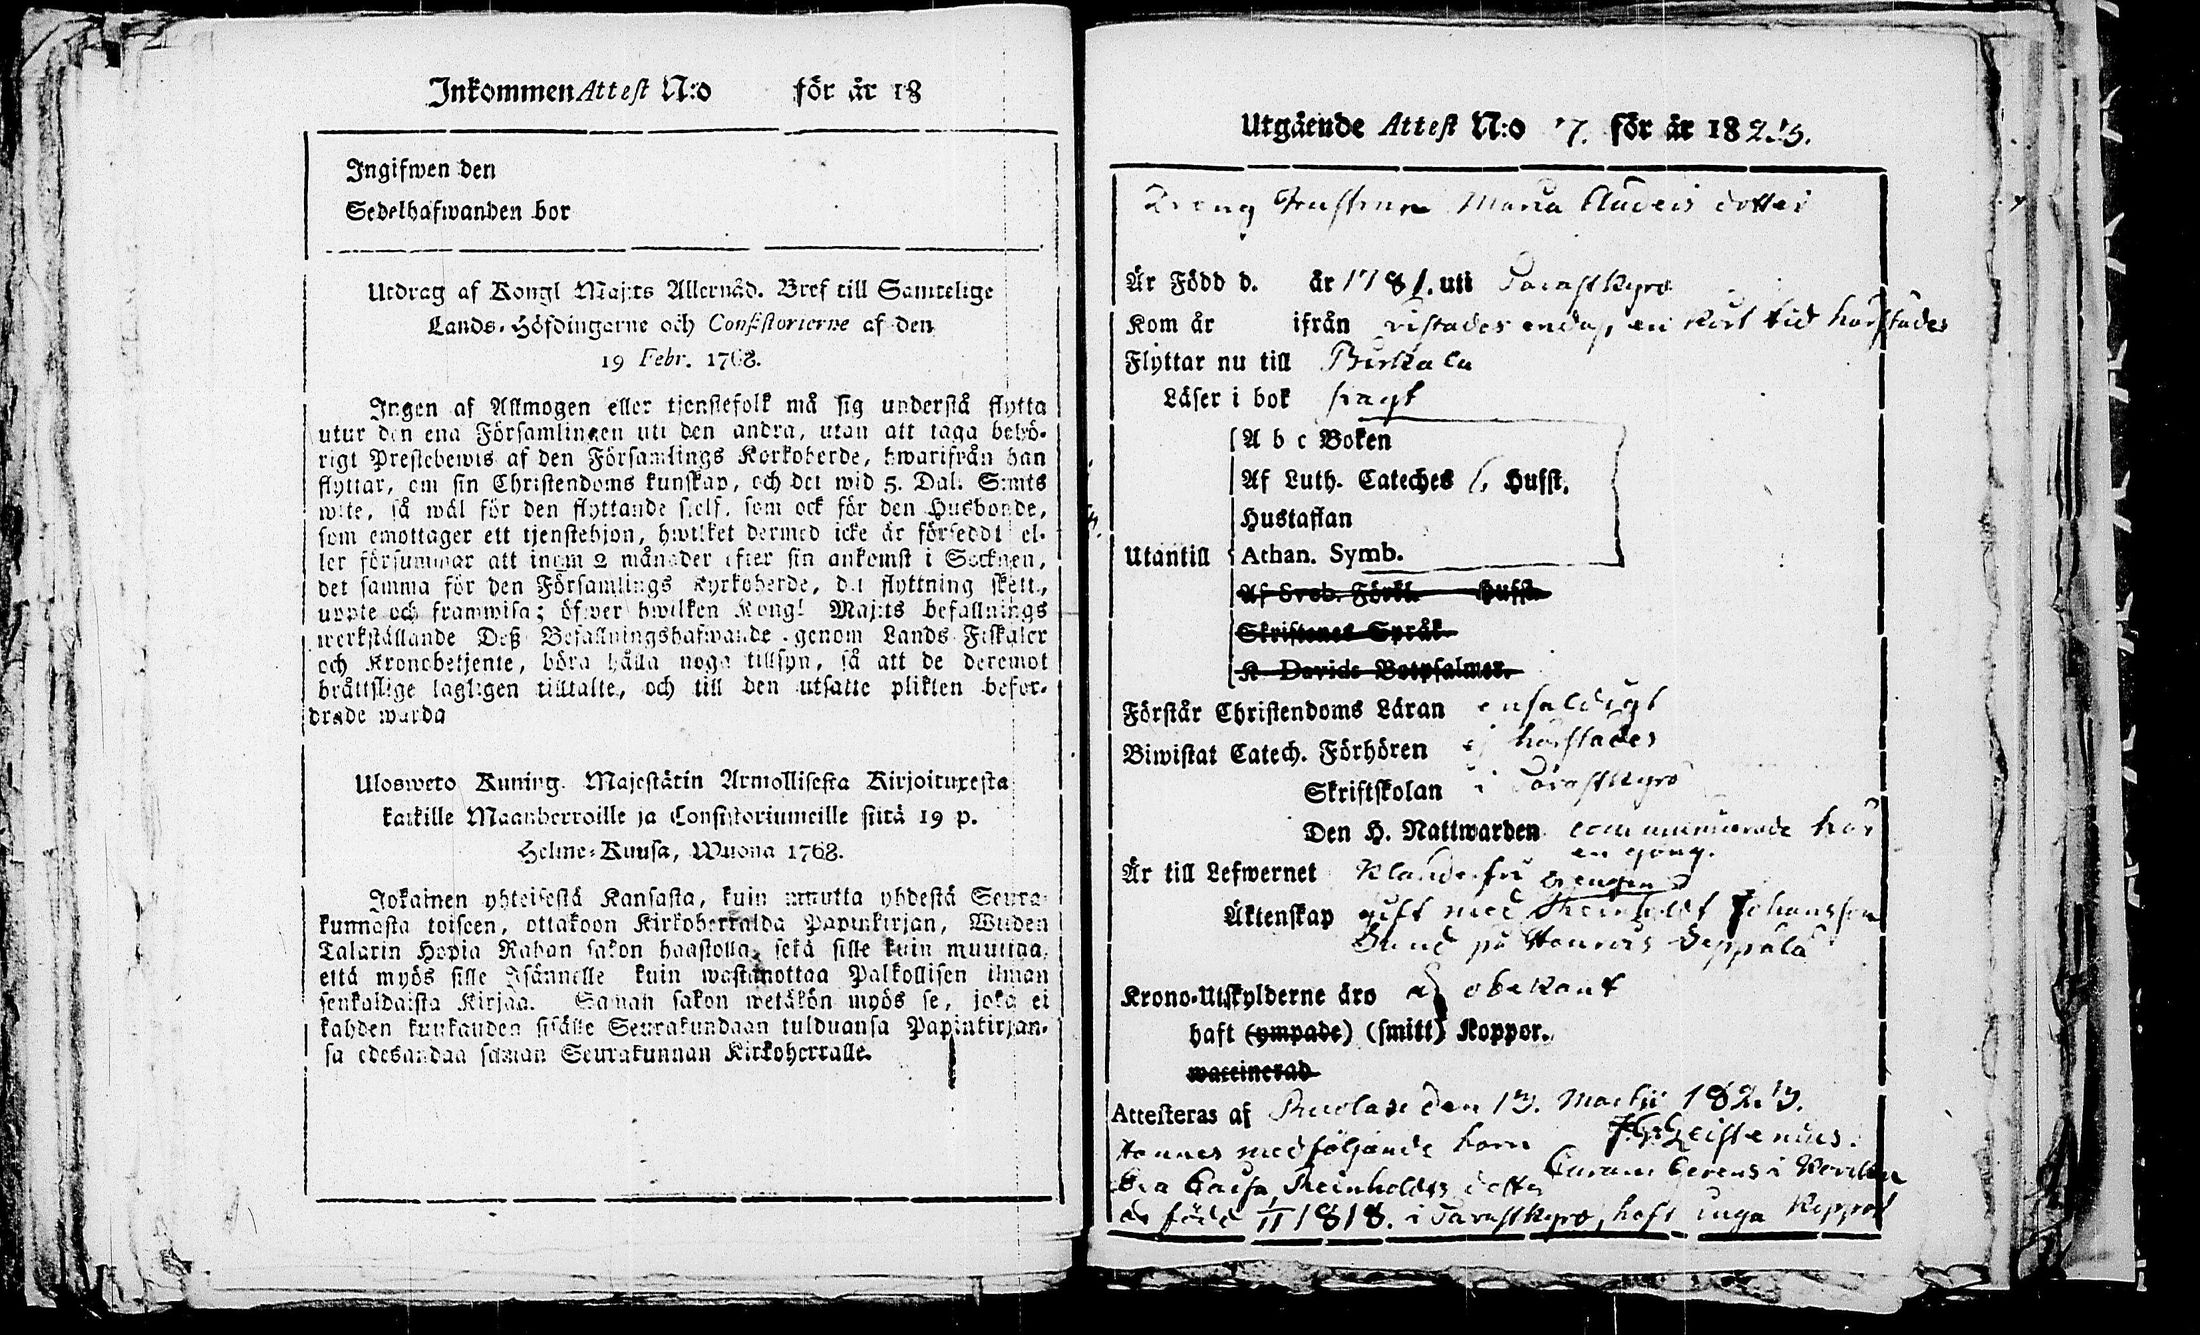 Inkommen Attest N:o för år 18
Ingifwen den
Sedelhafwanden bor
Utdrag af Kongl Maj:ts Allernåd. Bref till Samtelige
Lands-Höfdingarne och Consistorierne af den
19 Febr. 1768.
Ingen af Allmogen eller tjenstefolk må sig understå flytta
utur den ena Församlingen uti den andra, utan att taga behö-
rigt Prestebewis af den Församlings Korkoherde, hwarifrån han
flyttar, om sin Christendoms kunskap, och det wid 5. Dal. S:mts
wite, så wäl för den flyttande sielf, som ock för den Husbonde,
som emottager ett tjenstehjon, hwilket dermed icke är förseddt el-
ler försummar att inom 2 månader efter sin ankomst i Socknen,
det samma för den Församlings Kyrkoherde, dit flyttning skett,
uppte och framwisa; öfwer hwilken Kongl Maj:ts befallnings
werkställande Deß Befallningshafwande genom Lands Fiskaler
och Kronobetjente, böra hålla noga tillsyn, så att de deremot
bråttslige lagligen tilltalte, och till den utsatte plikten befor-
drade warda
Uloswето Kuning. Majestätin Armollisesta Kirjoituxesta
kaikille Maanherroille ja Consistoriumeille siitä 19 p.
Helme-Kuusa, Wuona 1768.
Jokainen yhteisestä Kansasta, kuin muutta yhdestä Seura-
kunnasta toiseen, ottakoon Kirkoherralda Papinkirjan, Wiiden
Talarin Hopia Rahan sakon haastolla, sekä sille kuin muuttaa,
että myös sille Isännelle kuin wastanottaa Palkollisen ilman
senkaldaista Kirjaa. Saman sakon wetäkön myös se, joka ei
kahden kuukauden sisälle Seurakundaan tulduansa Papinkirjan-
sa edesandaa saman Seurakunnan Kirkoherralle.
Utgående Attest N:o 7. för år 1823.
Dreng Hustrun Maria Anders dotter
Är Född d. år 1781. uti Tavastkyro
Kom år ifrån vistades endast en kort tid härstädes
Flyttar nu till Birkala
Läser i bok svagt
A b c Boken
Af Luth. Cateches 6 Hufst.
Hustaflan
Utantill Athan. Symb.
Af Sveb. Förkl. Hufst.
Skriftenes Språk
K Davids Botpsalmer.
Förstår Christendoms Läran enfaldigt
Biwistat Catech. Förhören ej härstädes
Skriftskolan i Tavastkyro
Den H. Nattwarden communicerade här
en gång.
Är till Lefwernet Klanderfri
Drengen
Äktenskap gift med Reinholdt Johansson
på Seppälä
Krono-Utskylderne äro obekant
haft (ympade) (smitt) Koppor.
waccinerad
Attesteras af Ruolax den 13. Martii 1823.
Hennes medföljande barn
i
Eva Caisa Reinholds dotter
är född 1818. i Tavastkyro, haft inga Koppor